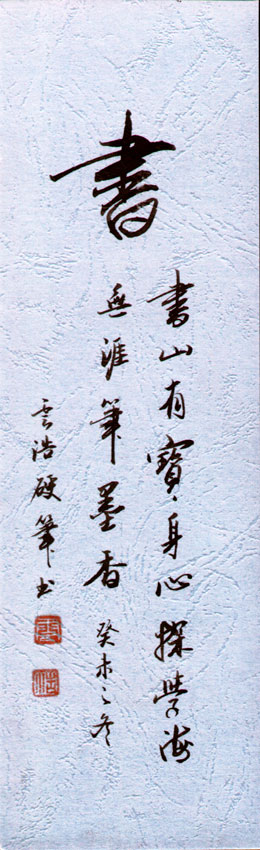 書
書山有寶身心探學海
無涯筆墨香 癸未之冬
雲浩硬筆书
雲
浩